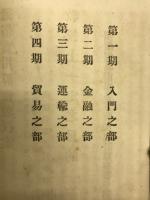 第一期 入門之部
第二期 金融之部
第三期 運輸之部
第四期 貿易之部